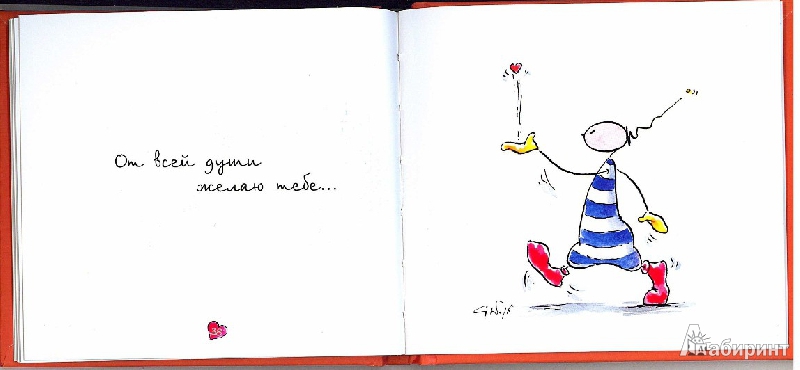 От всей души
желаю тебе...
38
Лабиринт